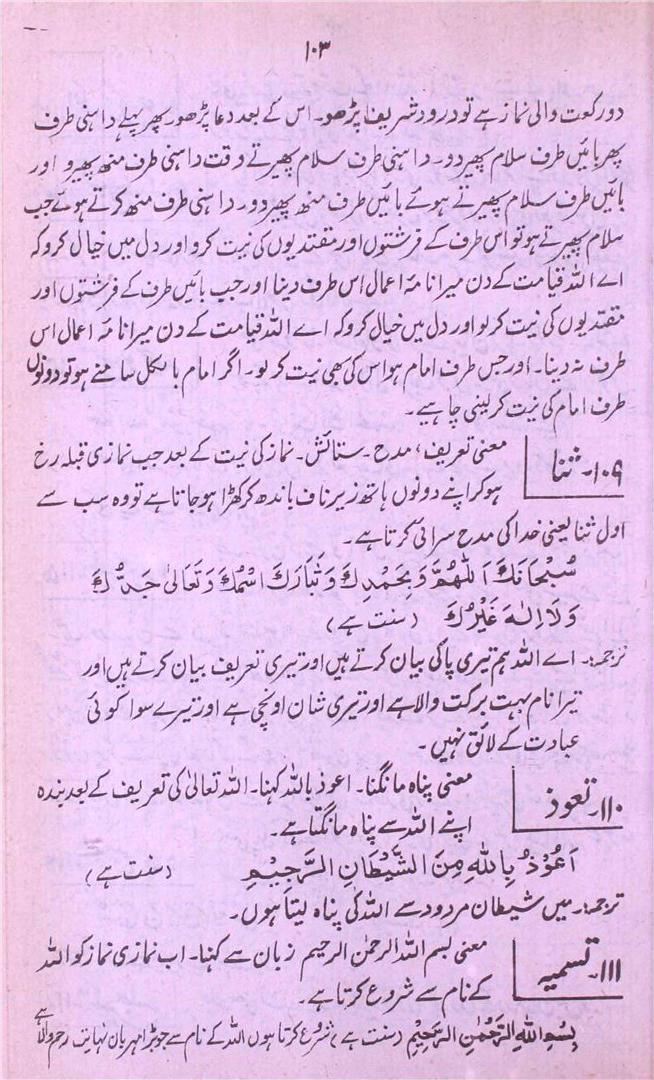 ۱۰۳
دو رکعت والی نماز ہے تو درود شریف پڑھو۔ اس کے بعد دعا پڑھو۔ پھر پہلے داہنی طرف
پھر بائیں طرف سلام پھیر دو۔ داہنی طرف سلام پھیرتے وقت داہنی طرف منھ پھیرو اور
بائیں طرف سلام پھیرتے ہوئے بائیں طرف منھ پھیر دو۔ داہنی طرف منھ کرتے ہوئے جب
سلام پھیرتے ہو تو اس طرف کے فرشتوں اور مقتدیوں کی نیت کرو اور دل میں خیال کرو کہ
اے اللہ قیامت کے دن میرا نامۂ اعمال اس طرف دینا اور جب بائیں طرف کے فرشتوں اور
مقتدیوں کی نیت کر لو اور دل میں خیال کرو کہ اے اللہ قیامت کے دن میرا نامۂ اعمال اس
طرف نہ دینا۔ اور جس طرف امام ہو اس کی بھی نیت کر لو۔ اگر امام بالکل سامنے ہو تو دونوں
طرف امام کی نیت کر لینی چاہیے۔
۱۰۹۔ ثنا
معنی تعریف، مدح۔ ستائش۔ نماز کی نیت کے بعد جب نمازی قبلہ رخ
ہو کر اپنے دونوں ہاتھ زیر ناف باندھ کر کھڑا ہو جاتا ہے تو وہ سب سے
اول ثنا یعنی خدا کی مدح سرائی کرتا ہے۔
سُبْحَانَكَ اَللّٰهُمَّ وَبِحَمْدِكَ وَتَبَارَكَ اسْمُكَ وَتَعَالٰى جَدُّكَ
وَلَا اِلٰهَ غَيْرُكَ (سنت ہے)
ترجمہ:۔ اے اللہ ہم تیری پاکی بیان کرتے ہیں اور تیری تعریف بیان کرتے ہیں اور
تیرا نام بہت برکت والا ہے اور تیری شان اونچی ہے اور تیرے سوا کوئی
عبادت کے لائق نہیں۔
۱۱۰۔ تعوذ
معنی پناہ مانگنا۔ اعوذ باللہ کہنا۔ اللہ تعالیٰ کی تعریف کے بعد بندہ
اپنے اللہ سے پناہ مانگتا ہے۔
اَعُوْذُ بِاللّٰهِ مِنَ الشَّيْطَانِ الرَّجِيْمِ (سنت ہے)
ترجمہ:۔ میں شیطان مردود سے اللہ کی پناہ لیتا ہوں۔
۱۱۱۔ تسمیہ
معنی بسم اللہ الرحمٰن الرحیم زبان سے کہنا۔ اب نمازی نماز کو اللہ
کے نام سے شروع کرتا ہے۔
بِسْمِ اللّٰهِ الرَّحْمٰنِ الرَّحِيْمِ (سنت ہے) شروع کرتا ہوں اللہ کے نام سے جو بڑا مہربان نہایت رحم والا ہے